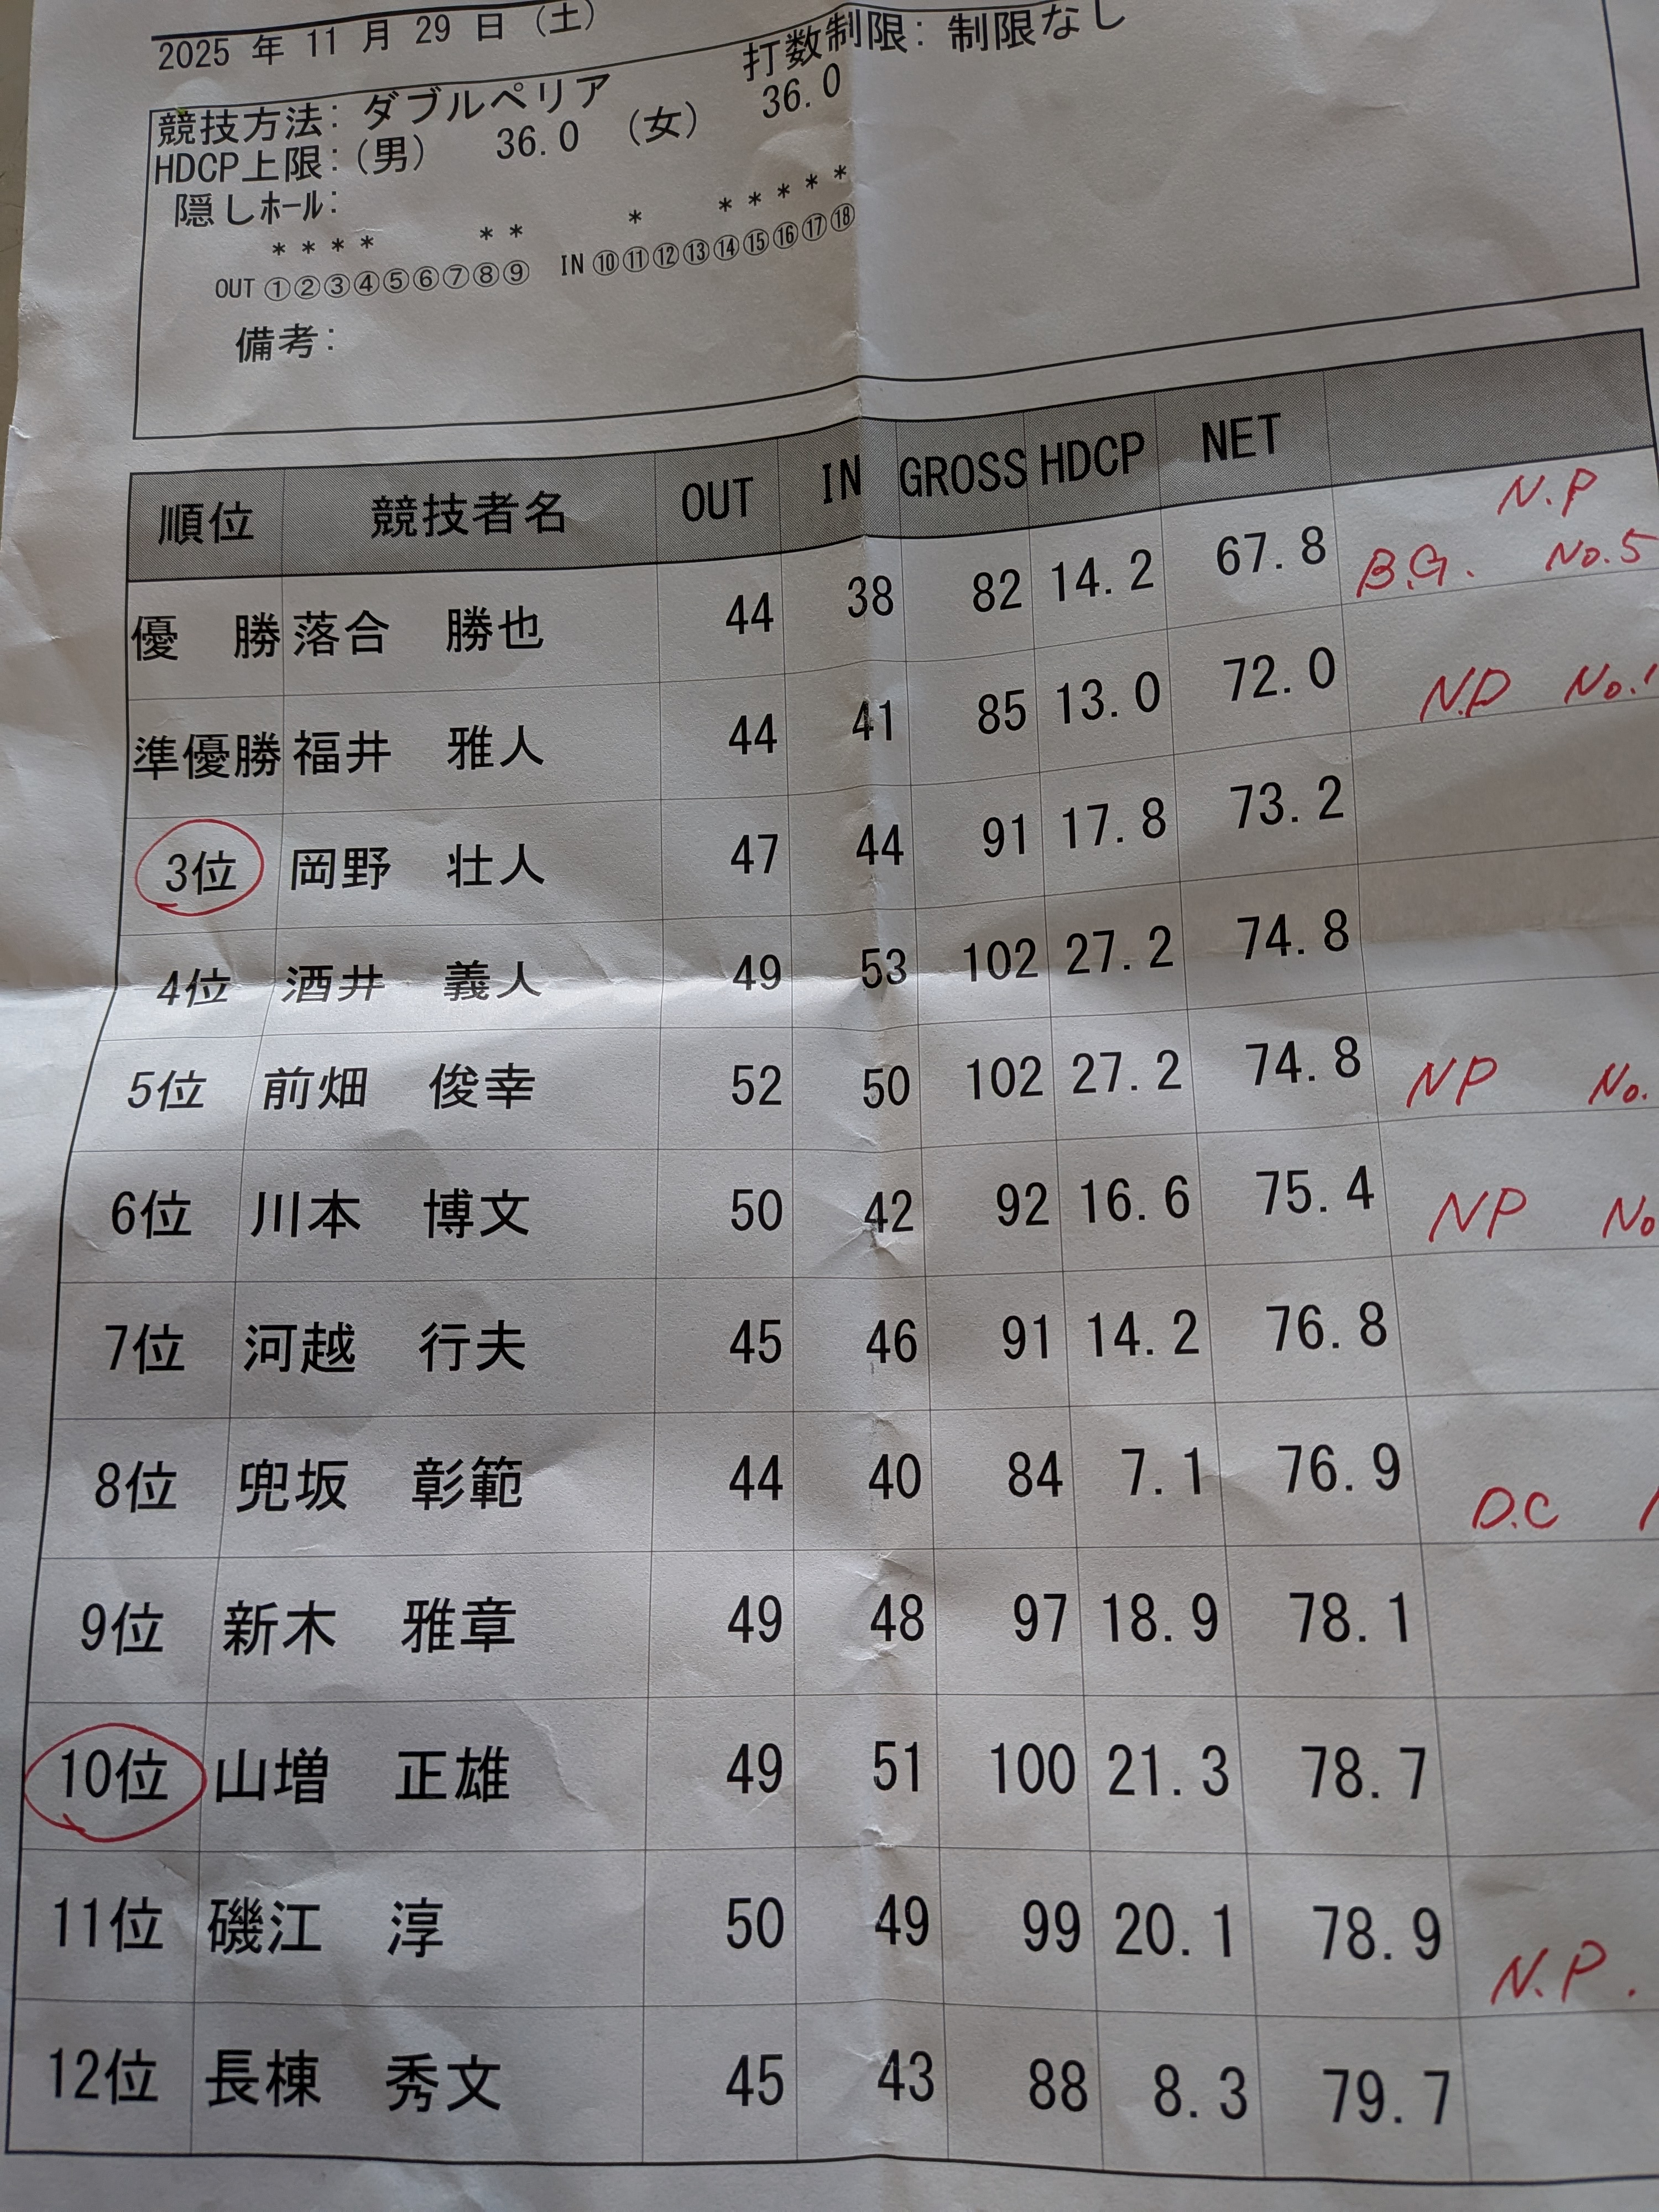 2025 年 11 月 29 日 (土)
競技方法: ダブルペリア 打数制限: 制限なし
HDCP上限:(男) 36.0 (女) 36.0
隠しホール:
* * * * * * * * * * * *
OUT ①②③④⑤⑥⑦⑧⑨ IN ⑩⑪⑫⑬⑭⑮⑯⑰⑱
備考:
順位 競技者名 OUT IN GROSS HDCP NET
N.P
優 勝 落合 勝也 44 38 82 14.2 67.8 B.G. No.5
準優勝 福井 雅人 44 41 85 13.0 72.0 N.P No.1
3位 岡野 壮人 47 44 91 17.8 73.2
4位 酒井 義人 49 53 102 27.2 74.8
5位 前畑 俊幸 52 50 102 27.2 74.8 NP No.
6位 川本 博文 50 42 92 16.6 75.4 NP No
7位 河越 行夫 45 46 91 14.2 76.8
8位 兜坂 彰範 44 40 84 7.1 76.9 D.C
9位 新木 雅章 49 48 97 18.9 78.1
10位 山増 正雄 49 51 100 21.3 78.7
11位 磯江 淳 50 49 99 20.1 78.9 N.P.
12位 長棟 秀文 45 43 88 8.3 79.7